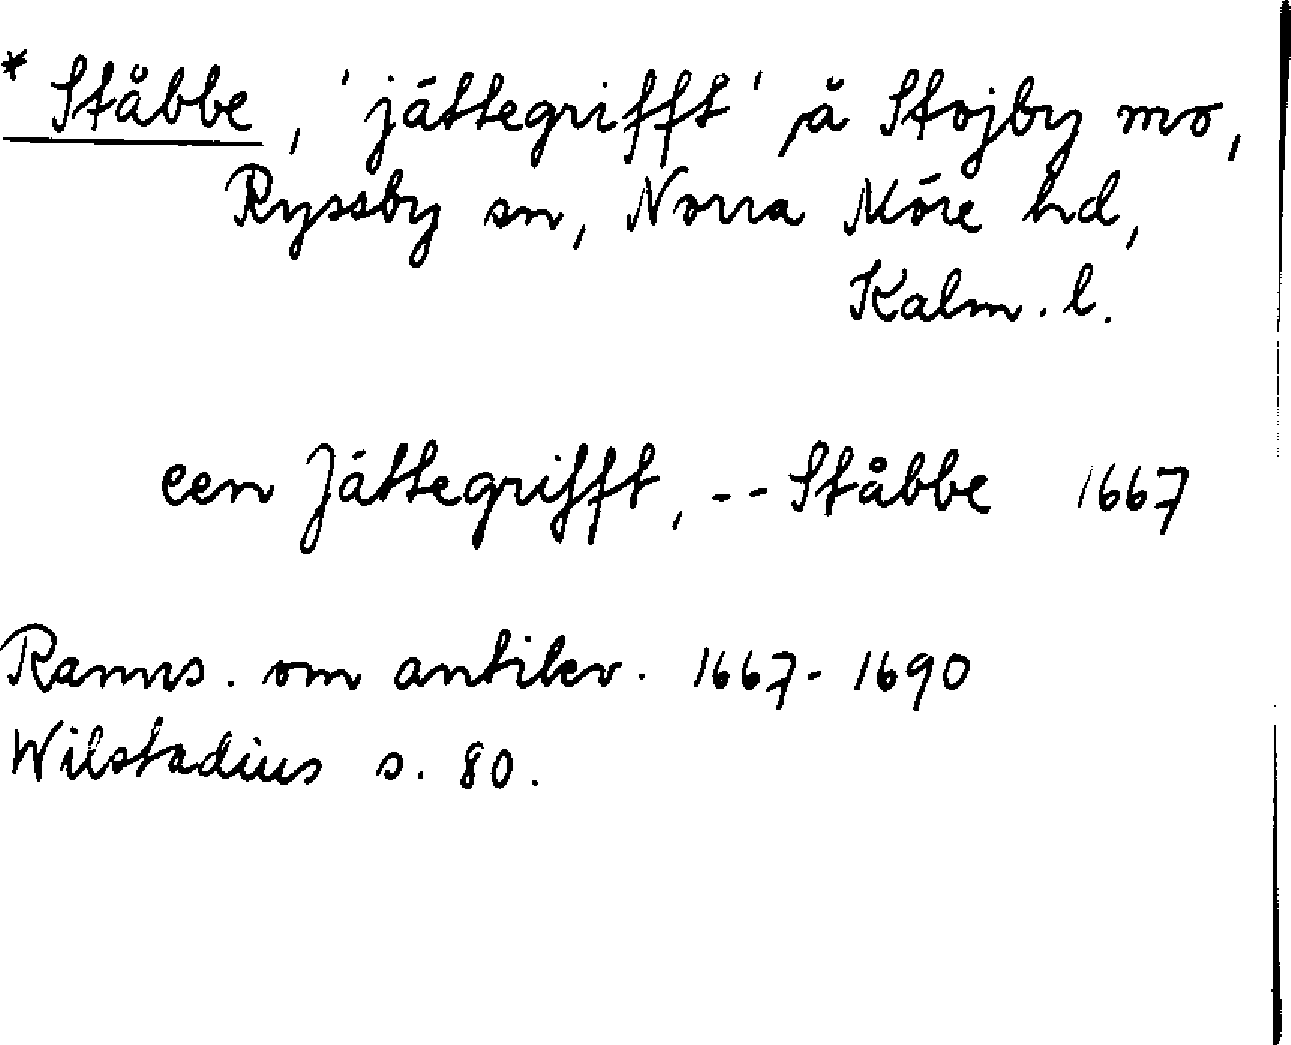 * Ståbbe, 'jättegrifft' på Stojby mo,
Ryssby sn, Norra Möre hd,
Kalm. l.
een Jättegrifft, -- Ståbbe 1667
Ranns. om antikv. 1667-1690
Wilstadius s. 80.